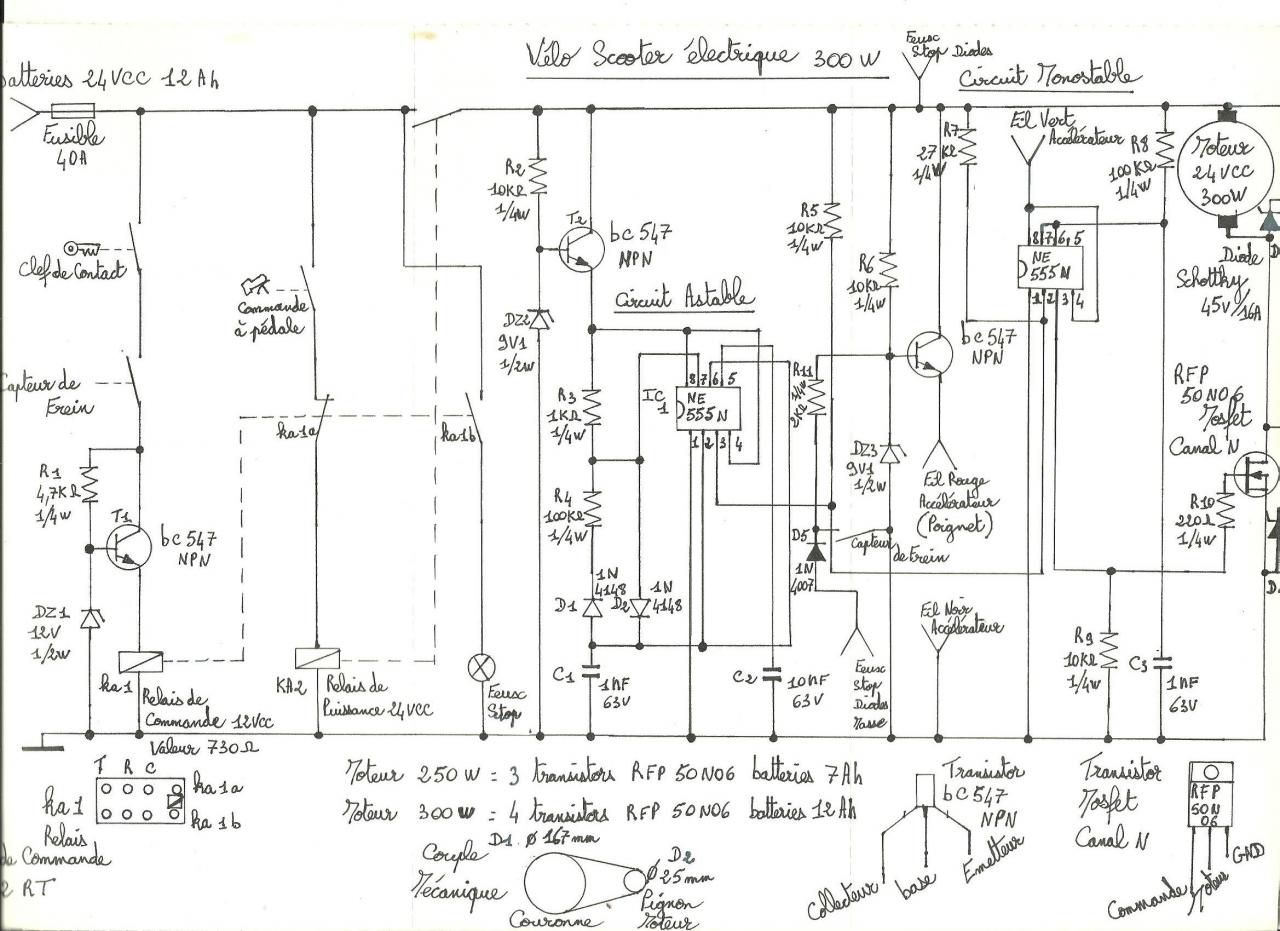 Vélo Scooter électrique 300 W
Feux
Stop Diodes
Circuit Monostable
batteries 24VCC 12Ah
Fusible
40A
Clef de Contact
Capteur de
Frein
R1
4,7KΩ
1/4W
T1
bc547
NPN
DZ1
12V
1/2W
ka1
Relais de
Commande 12Vcc
Valeur 730Ω
Commande
à pédale
ka1a
KA2
Relais de
Puissance 24VCC
ka1b
Feux
Stop
R2
10KΩ
1/4W
T2
bc547
NPN
DZ2
9V1
1/2W
Circuit Astable
R3
1KΩ
1/4W
R4
100KΩ
1/4W
IC
1
8 7 6 5
NE
555N
1 2 3 4
D1
1N
4148
D2
1N
4148
C1
1nF
63V
C2
10nF
63V
R5
10KΩ
1/4W
R6
10KΩ
1/4W
R11
1/4W
2KΩ
DZ3
9V1
1/2W
D5
1N
4007
Capteur
de Frein
Feux
Stop
Diodes
Masse
bc547
NPN
Fil Rouge
Accélérateur
(Poignet)
Fil Noir
Accélérateur
R7
27KΩ
1/4W
Fil Vert
Accélérateur
8 7 6 5
NE
555N
1 2 3 4
R8
100KΩ
1/4W
Moteur
24VCC
300W
Diode
Schottky
45V/16A
RFP
50N06
Mosfet
Canal N
R10
220Ω
1/4W
R9
10KΩ
1/4W
C3
1nF
63V
T R C
ka1a
ka1b
ka1
Relais
de Commande
2 RT
Moteur 250W = 3 transistors RFP 50N06 batteries 7Ah
Moteur 300W = 4 transistors RFP 50N06 batteries 12Ah
Couple
Mécanique
D1 Ø 167mm
Couronne
D2
Ø 25mm
Pignon
Moteur
Transistor
bC547
NPN
Collecteur
base
Emetteur
Transistor
Mosfet
Canal N
RFP
50N
06
Commande
Moteur
GND